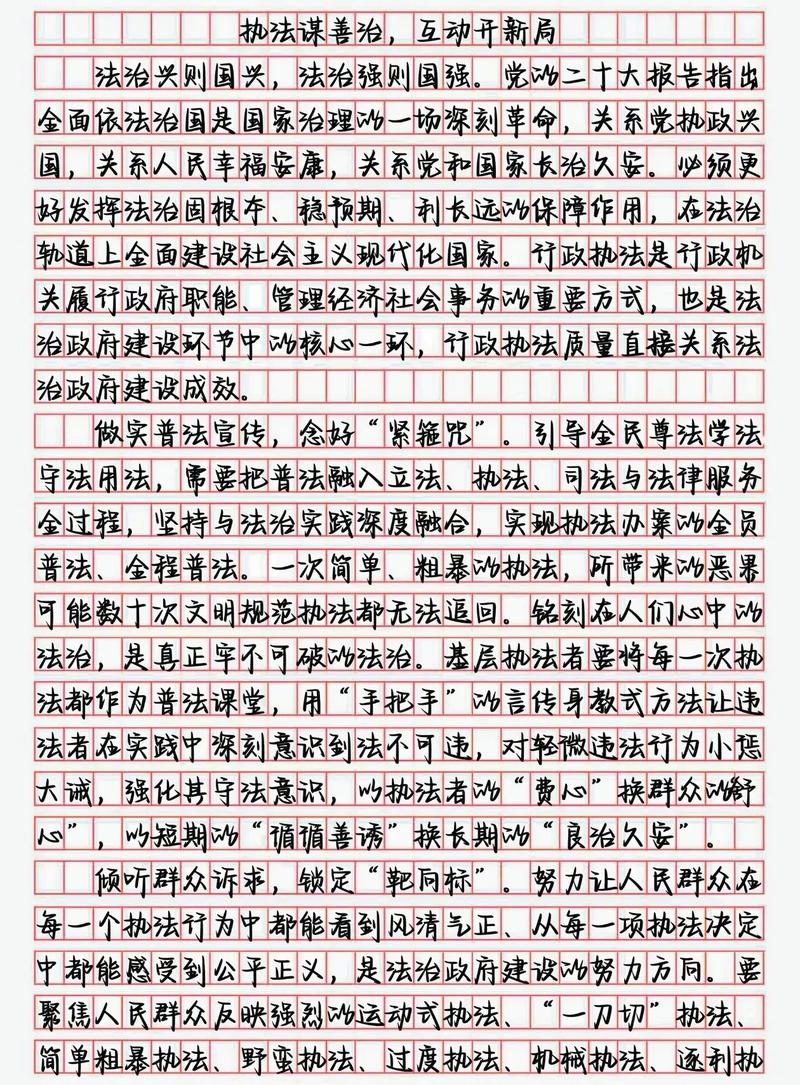 执法谋善治，互动开新局
法治兴则国兴，法治强则国强。党的二十大报告指出
全面依法治国是国家治理的一场深刻革命，关系党执政兴
国，关系人民幸福安康，关系党和国家长治久安。必须更
好发挥法治固根本、稳预期、利长远的保障作用，在法治
轨道上全面建设社会主义现代化国家。行政执法是行政机
关履行政府职能、管理经济社会事务的重要方式，也是法
治政府建设环节中的核心一环，行政执法质量直接关系法
治政府建设成效。
做实普法宣传，念好“紧箍咒”。引导全民尊法学法
守法用法，需要把普法融入立法、执法、司法与法律服务
全过程，坚持与法治实践深度融合，实现执法办案的全员
普法、全程普法。一次简单、粗暴的执法，所带来的恶果
可能数十次文明规范执法都无法追回。铭刻在人们心中的
法治，是真正牢不可破的法治。基层执法者要将每一次执
法都作为普法课堂，用“手把手”的言传身教式方法让违
法者在实践中深刻意识到法不可违，对轻微违法行为小惩
大诫，强化其守法意识，以执法者的“费心”换群众的舒
心”，以短期的“循循善诱”换长期的“良治久安”。
倾听群众诉求，锁定“靶向标”。努力让人民群众在
每一个执法行为中都能看到风清气正、从每一项执法决定
中都能感受到公平正义，是法治政府建设的努力方向。要
聚焦人民群众反映强烈的运动式执法、“一刀切”执法、
简单粗暴执法、野蛮执法、过度执法、机械执法、逐利执